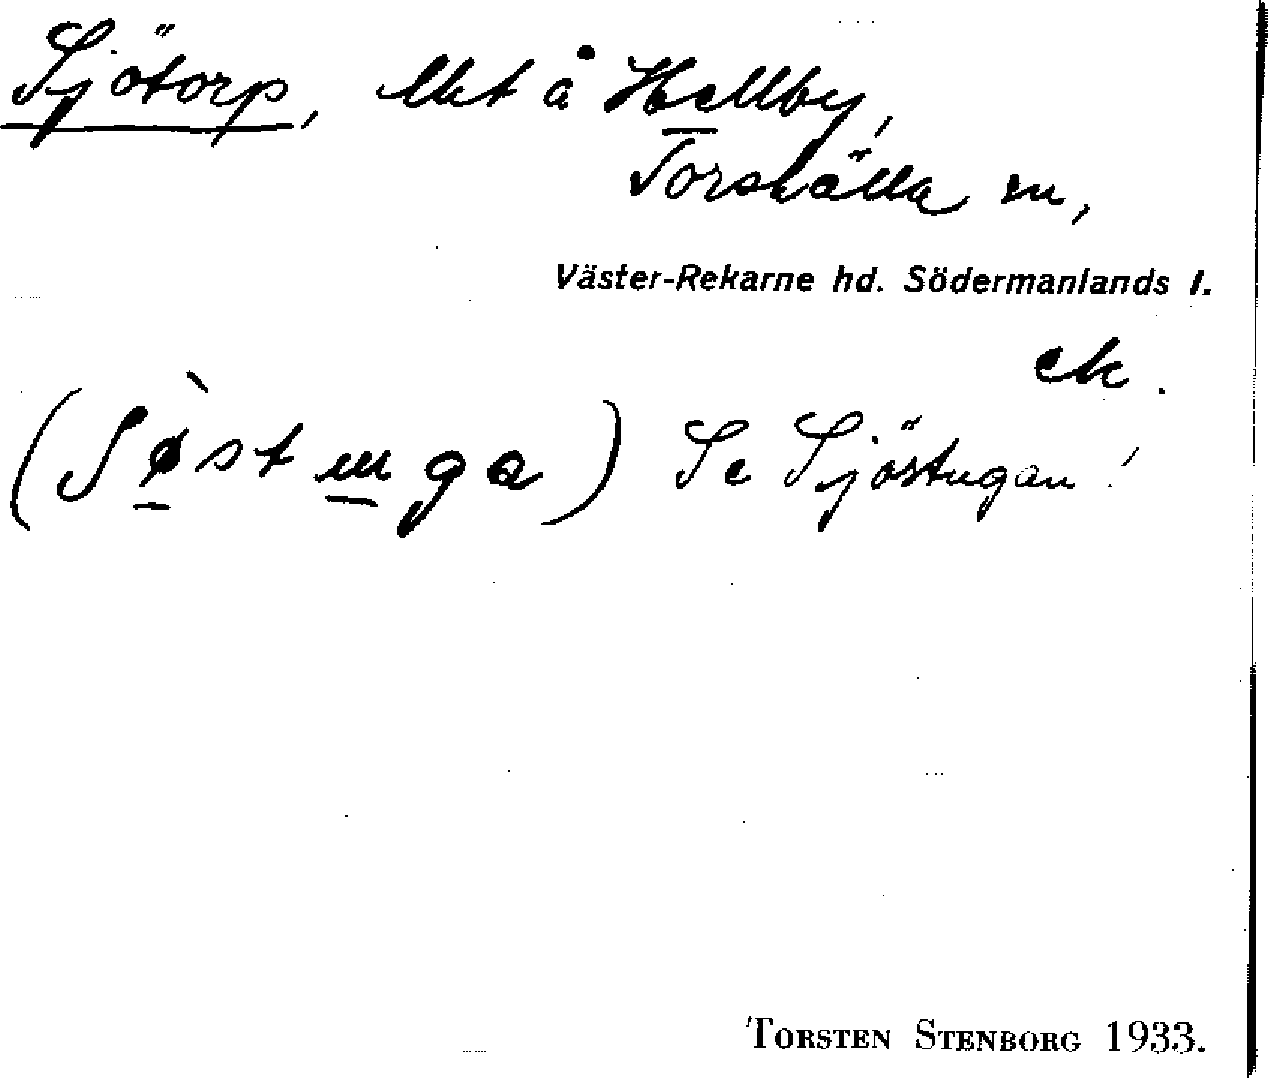 Sjötorp, lht å Hällby,
Torshälla sn,
Väster-Rekarne hd. Södermanlands l.
ek.
(Søstuga) Se Sjöstugan!
TORSTEN STENBORG 1933.